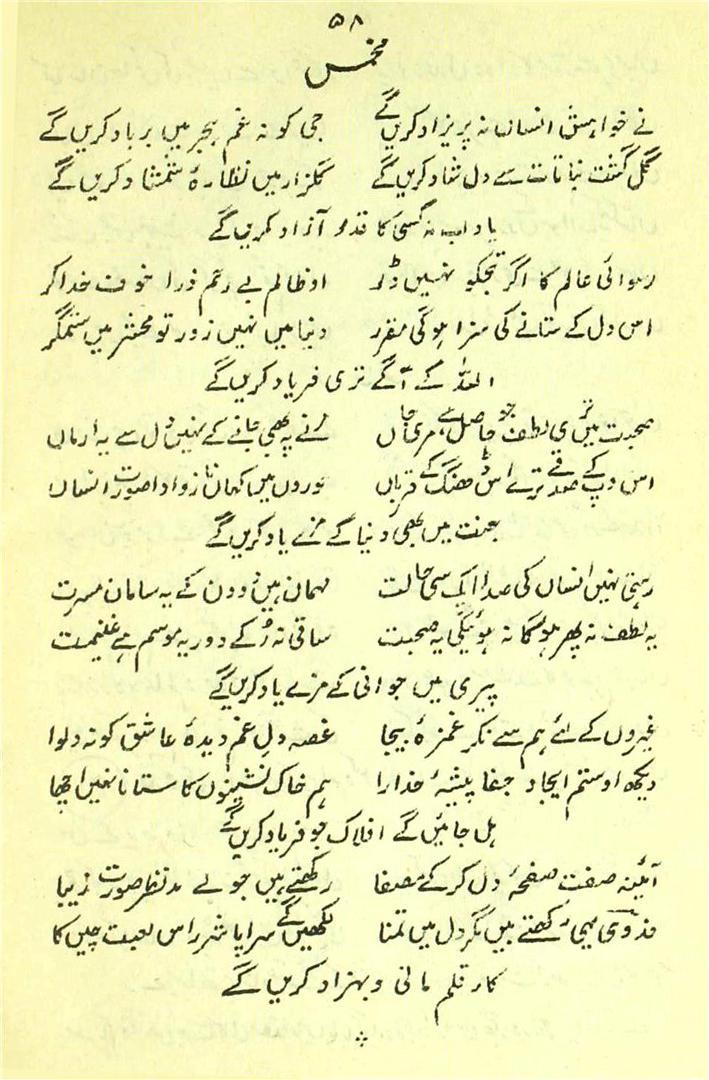 ۵۸
مخمس
نے خواہش انساں نہ پریزاد کریں گے جی کو نہ غم ہجر میں برباد کریں گے
گل گشت نباتات سے دل شاد کریں گے گلزار میں نظارۂ شمشاد کریں گے
یاد اب نہ کسی کا قد آزاد کریں گے
رسوائی عالم کا اگر تجکو نہیں ڈر او ظالم بے رحم ذرا خوف خدا کر
اس دل کے ستانے کی سزا ہوگی مقرر دنیا میں نہیں زور تو محشر میں ستمگر
اللہ کے آگے تری فریاد کریں گے
صحبت میں تری لطف جو حاصل ہے مری جاں مرنے پہ بھی جانے کے نہیں دل سے یہ ارماں
اس کے صدقے ترے اس ڈھنگ کے قرباں حوروں میں کہاں ناز و ادا صورت انساں
جنت میں بھی دنیا کے مزے یاد کریں گے
رہتی نہیں انساں کی صدا ایک سی حالت مہمان ہیں دو دن کے یہ سامان مسرت
یہ لطف نہ پھر ہوگا نہ ہوئیگی یہ صحبت ساقی نہ رُکے دور یہ موسم ہے غنیمت
پیری میں جوانی کے مزے یاد کریں گے
غیروں کے لئے ہم سے نکر غمزۂ بیجا غصہ دل غم دیدۂ عاشق کو نہ دلوا
دیکھ او ستم ایجاد جفا پیشہ خدارا ہم خاک نشینوں کا ستانا نہیں اچھا
ہل جائیں گے افلاک جو فریاد کریں گے
آئینہ صفت صفحۂ دل کر کے مصفا رکھتے ہیں جو بے مد نظر صورت زیبا
فدوی یہی رکھتے ہیں مگر دل میں تمنا لکھیں گے سراپا شرر اس لعبت چیں کا
کار قلم مانی و بہزاد کریں گے